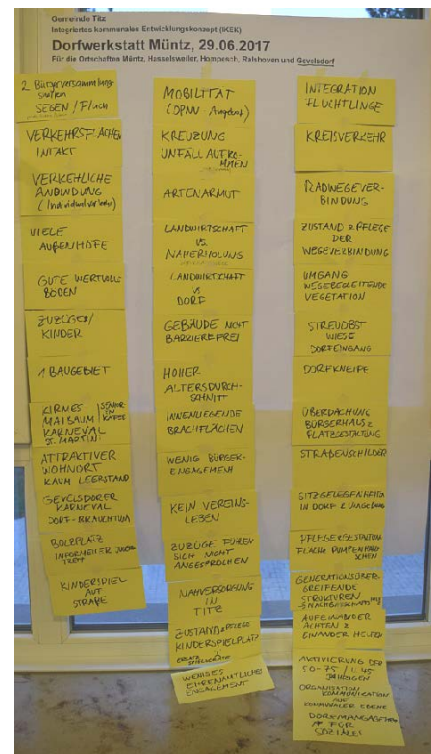 Gemeinde Titz
Integriertes kommunales Entwicklungskonzept (IKEK)
Dorfwerkstatt Müntz, 29.06.2017
Für die Ortschaften Müntz, Hasselsweiler, Hompesch, Ralshoven und Gevelsdorf
2 Bürgerversammlung
SEGEN / Fluch
VERKEHRSFLÄCHEN
INTAKT
VERKEHLICHE
ANBINDUNG
(Individualverkehr)
VIELE
AUßENHÖFE
GUTE WERTVOLLE
BÖDEN
ZUZÜGE/
KINDER
1 BAUGEBIET
KIRMES
MAIBAUM
KARNEVAL
ST. MARTIN
SENIOREN
KAFFEE
ATTRAKTIVER
WOHNORT
KAUM LEERSTAND
GEVELSDORFER
KARNEVAL
DORF-BRAUCHTUM
BOLZPLATZ
INFORMELLER
TREFF
KINDERSPIEL
AUF
STRAßE
MOBILITÄT
(ÖPNV-Angebot)
KREUZUNG
UNFALLAUFKO-
MMEN
ARTENARMUT
LANDWIRTSCHAFT
VS.
NAHERHOLUNG
LANDWIRTSCHAFT
VS
DORF
GEBÄUDE NICHT
BARRIEREFREI
HOHER
ALTERSDURCH-
SCHNITT
INNENLIEGENDE
BRACHFLÄCHEN
WENIG BÜRGER-
ENGAGEMENT
KEIN VEREINS-
LEBEN
ZUZÜGE FÜHLEN
SICH NICHT
ANGESPROCHEN
NAHVERSORGUNG
IN
TITZ
ZUSTAND & PFLEGE
KINDERSPIELPLATZ
WENIGES
EHRENAMTLICHES
ENGAGEMENT
INTEGRATION
FLÜCHTLINGE
KREISVERKEHR
RADWEGEVER-
BINDUNG
ZUSTAND & PFLEGE
DER
WEGEVERBINDUNG
UMGANG
WEGEBEGLEITENDE
VEGETATION
STREUOBST
WIESE
DORFEINGANG
DORFKNEIPE
ÜBERDACHUNG
BÜRGERHAUS &
PLATZGESTALTUNG
STRAßENSCHILDER
SITZGELEGENHEITEN
IN DORF & UMGEBUNG
FLÄCHE
GENERATIONSÜBER-
GREIFENDE
STRUKTUREN
AUFEINANDER
ACHTEN &
EINANDER HELFEN
AKTIVIERUNG DER
50-75
JÄHRIGEN
ORGANISATION
KOMMUNIKATION
AUF
KOMMUNALER EBENE
DORFMANAGER
FÜR
SOZIALES